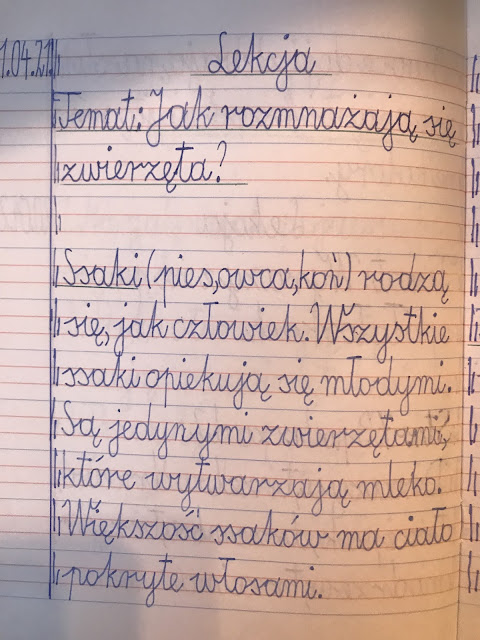 1.04.21. Lekcja
Temat: Jak rozmnażają się
zwierzęta?
Ssaki (pies, owca, koń) rodzą
się, jak człowiek. Wszystkie
ssaki opiekują się młodymi.
Są jedynymi zwierzętami,
które wytwarzają mleko.
Większość ssaków ma ciało
pokryte włosami.